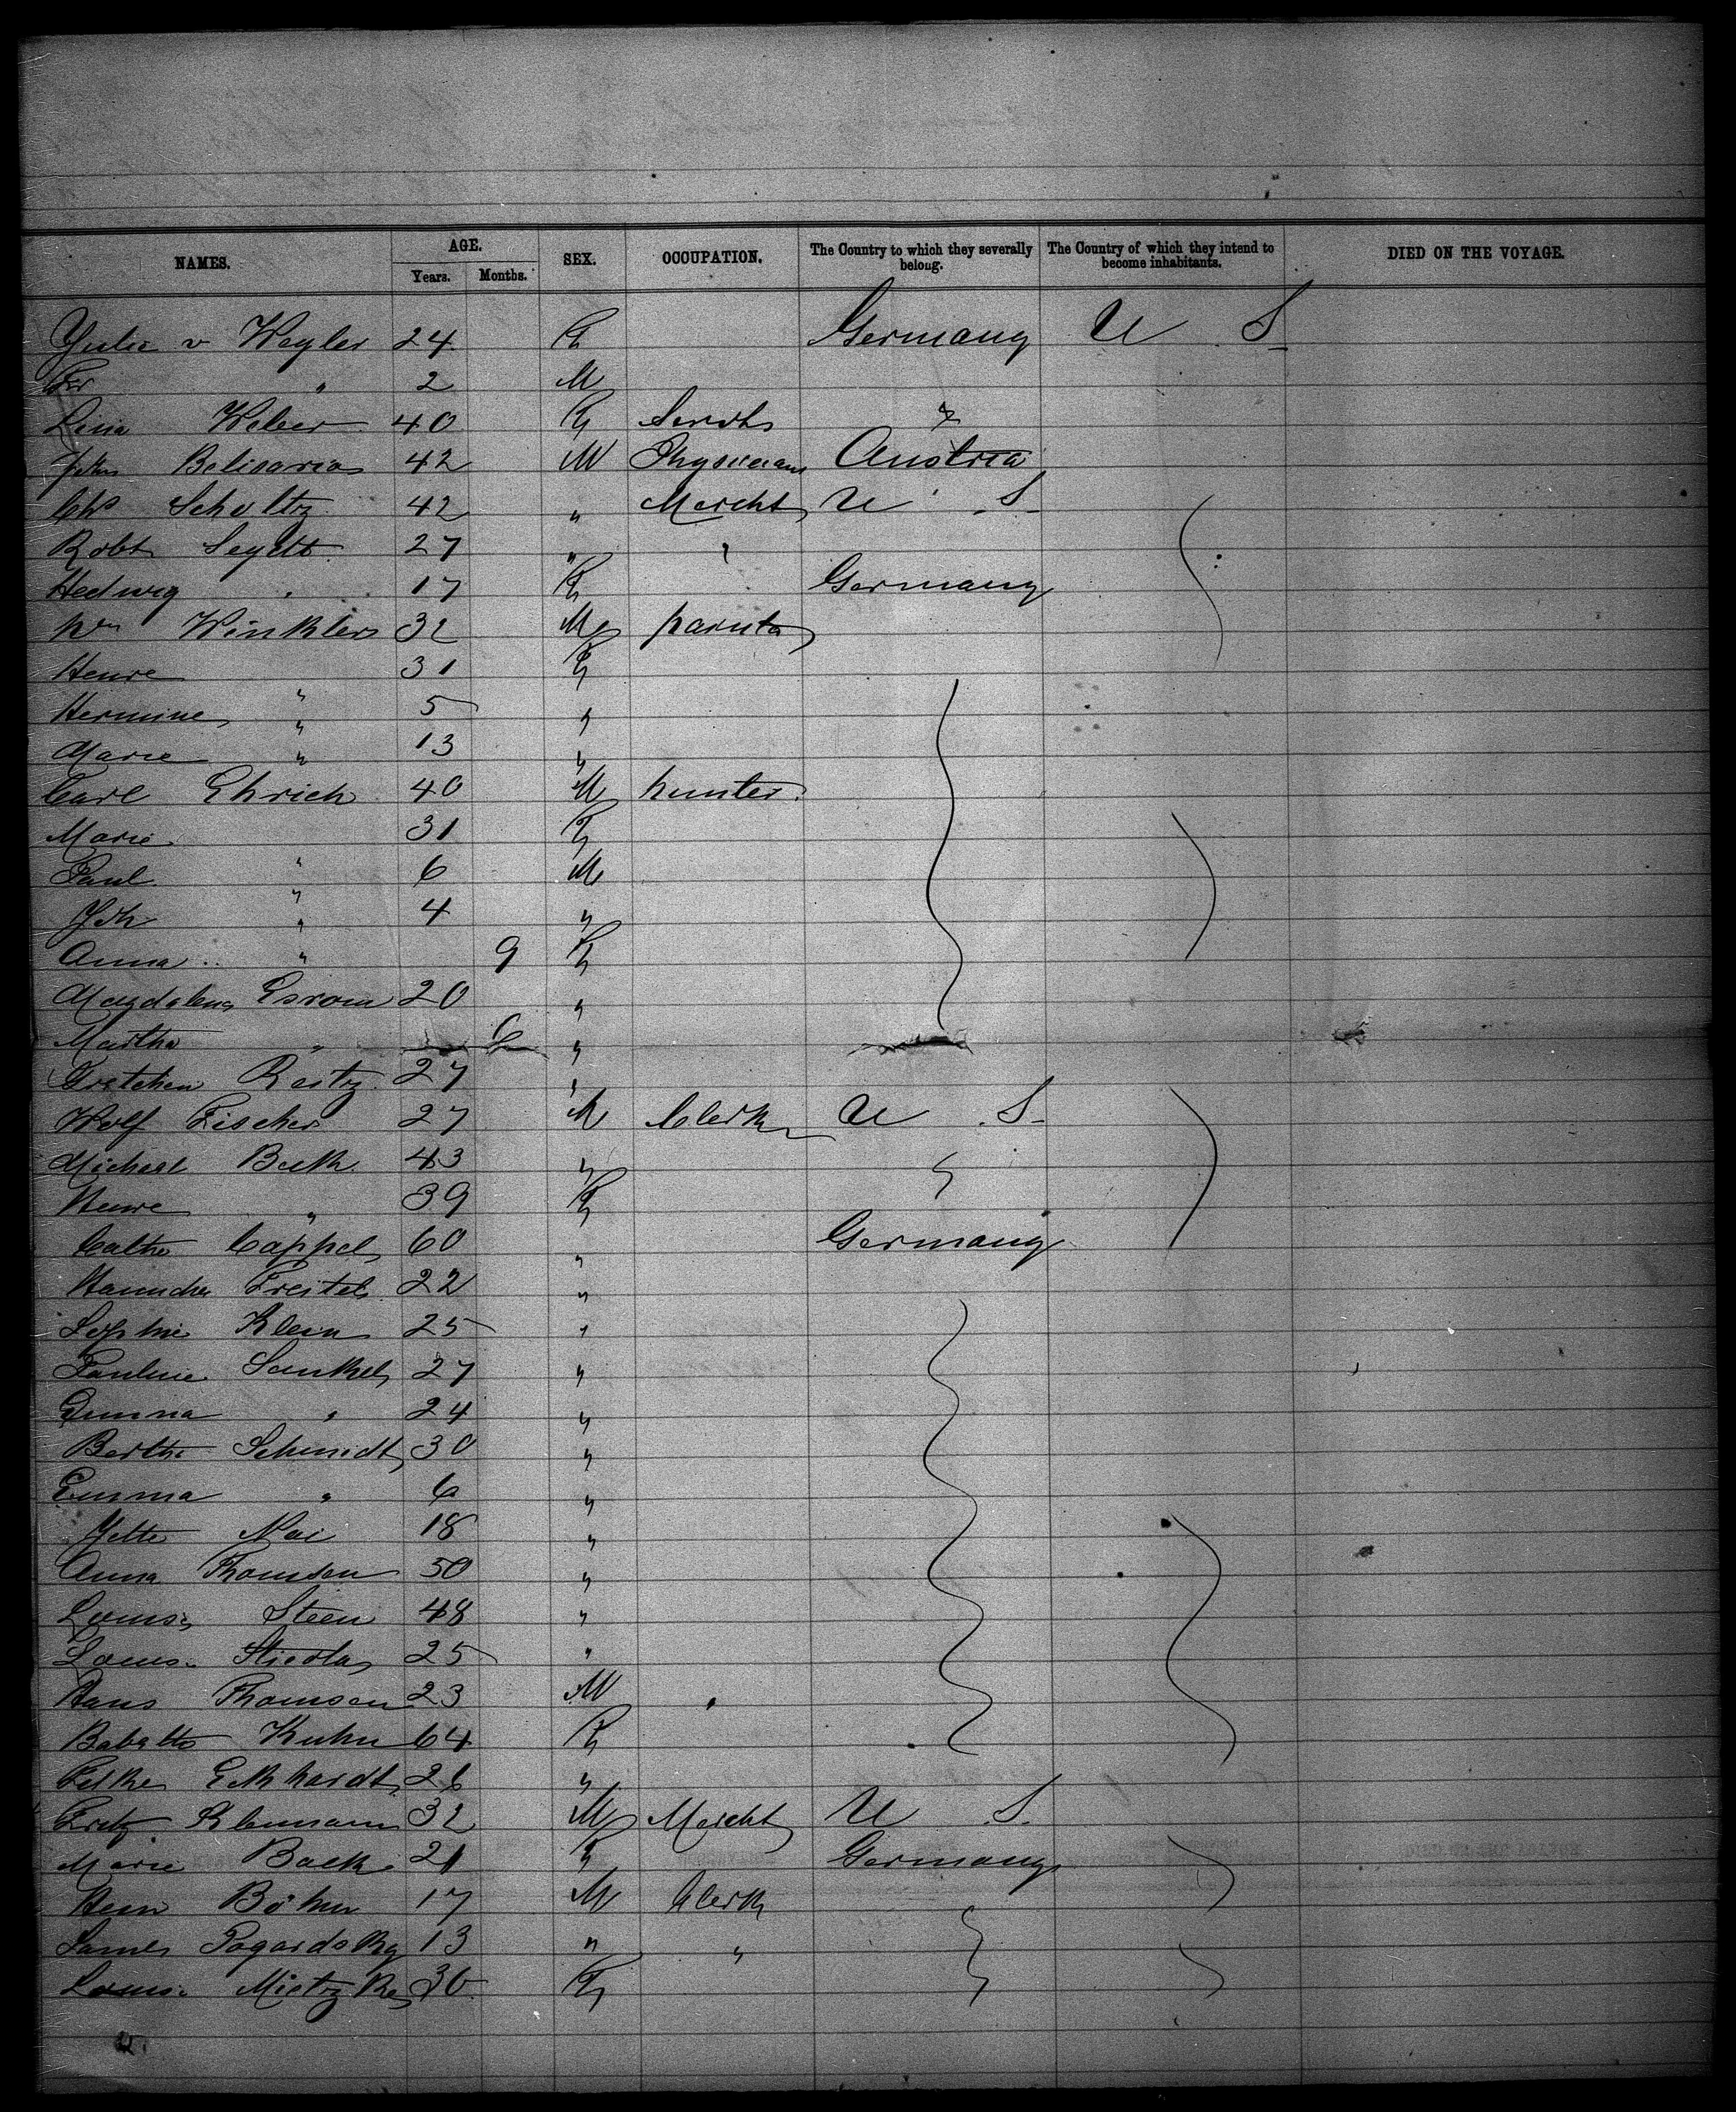 NAMES. AGE. Years. Months. SEX. OCCUPATION. The Country to which they severally belong. The Country of which they intend to become inhabitants. DIED ON THE VOYAGE.
Julie v Weyler 24 F Germany U S
" 2 M
Lina Weber 40 F Servt "
Belisario 42 M Physician Austria
Chs Scholtz 42 " Mercht U S
Robt Segett 27 " "
Hedwig " 17 F Germany
Wm Winkler 32 M painter
Henre " 31 F
Hermine " 5 "
Marie " 13 "
Carl Ehrich 40 M hunter
Marie " 31 F
Paul " 6 M
Joh " 4 "
Anna " 9 F
Magdalena Esrom 20 "
Martha " 6 "
Gretchen Reitz 27 "
Wolf Fischer 27 M Clerk U S
Michael Beck 43 " "
Henre " 39 F
Cathe Cappel 60 " Germany
Freitel 22 "
Sophie Klein 25 "
Pauline Sankel 27 "
Emma " 24 "
Bertha Schmidt 30 "
Emma " 6 "
Jette Noi 18 "
Anna Thomsen 50 "
Louise Steen 48 "
Louise 25 "
Hans Thomsen 23 M "
Babette Kuhn 64 F
Eckhardt 26 "
Fritz Klemann 32 M Mercht U S
Marie Back 21 F Germany
Hein Böhm 17 M Clerk
James Pogardsky 13 " "
Louise Mietzke 36 F